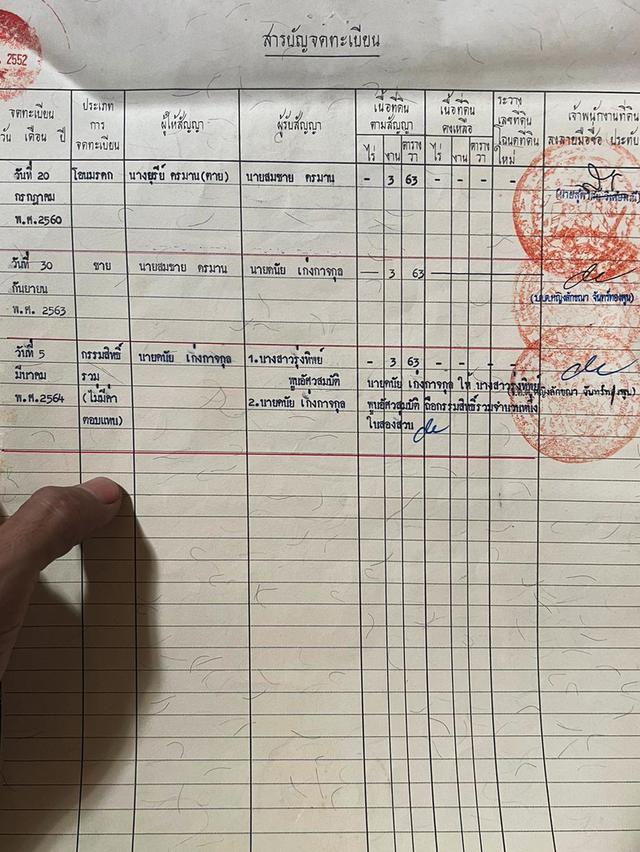 2552
สารบัญจดทะเบียน
จดทะเบียน
วัน เดือน ปี
ประเภท
การ
จดทะเบียน
ผู้ให้สัญญา
ผู้รับสัญญา
เนื้อที่ดิน
ตามสัญญา
ไร่ งาน ตาราง
วา
เนื้อที่ดิน
คงเหลือ
ไร่ งาน ตาราง
วา
ระวาง
เลขที่ดิน
โฉนดที่ดิน
ใหม่
เจ้าพนักงานที่ดิน
ลงลายมือชื่อ ประทับ
วันที่ 20 โอนมรดก นางยุรีย์ ครมาน(ตาย) นายสมชาย ครมาน - 3 63 - - - -
กรกฎาคม
พ.ศ.2560
วันที่ 30 ขาย นายสมชาย ครมาน นายดนัย เก่งกาจกุล — 3 63
กันยายน
พ.ศ. 2563
วันที่ 5 กรรมสิทธิ์ นายดนัย เก่งกาจกุล 1.นางสาวรุ่งทิพย์ - 3 63 - - - -
มีนาคม รวม พูนอัศวสมบัติ นายดนัย เก่งกาจกุล ให้ นางสาวรุ่งทิพย์
พ.ศ.2564 (ไม่มีค่า 2.นายดนัย เก่งกาจกุล พูนอัศวสมบัติ ถือกรรมสิทธิ์รวมจำนวนหนึ่ง
ตอบแทน) ในสองส่วน